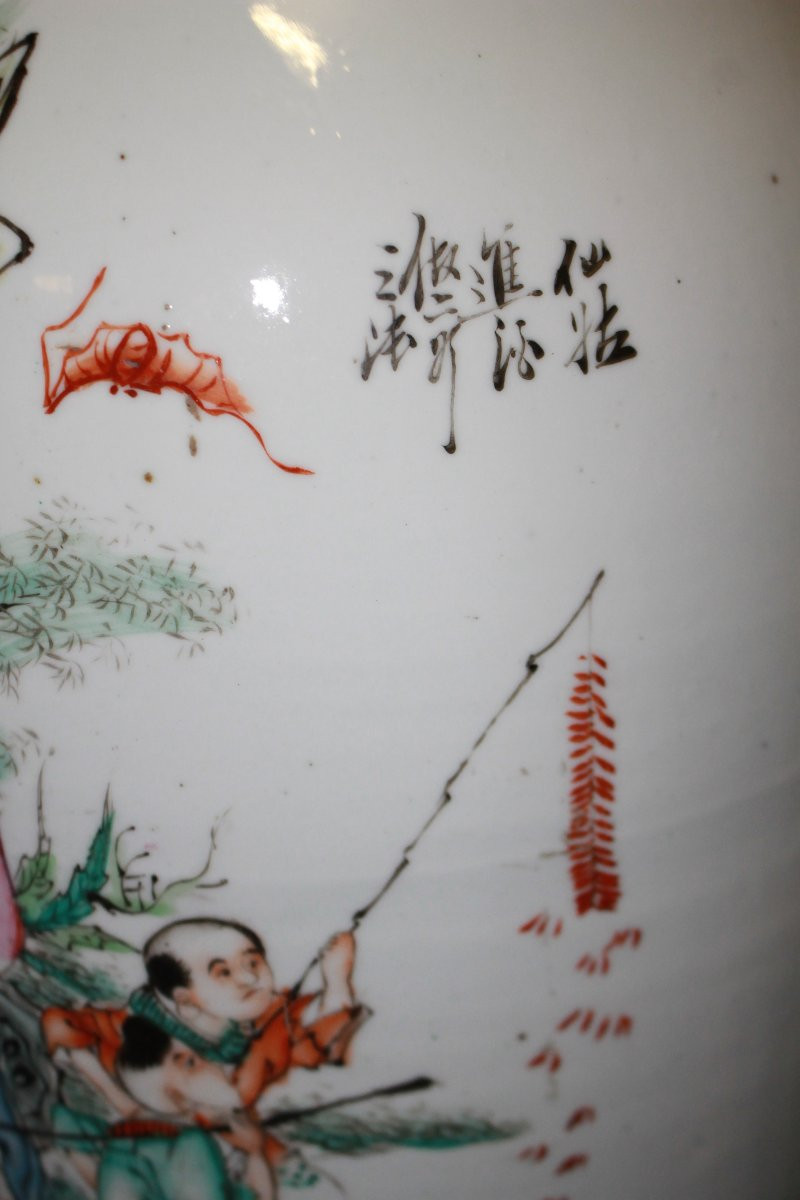 仙姑
進酒
倣
之法